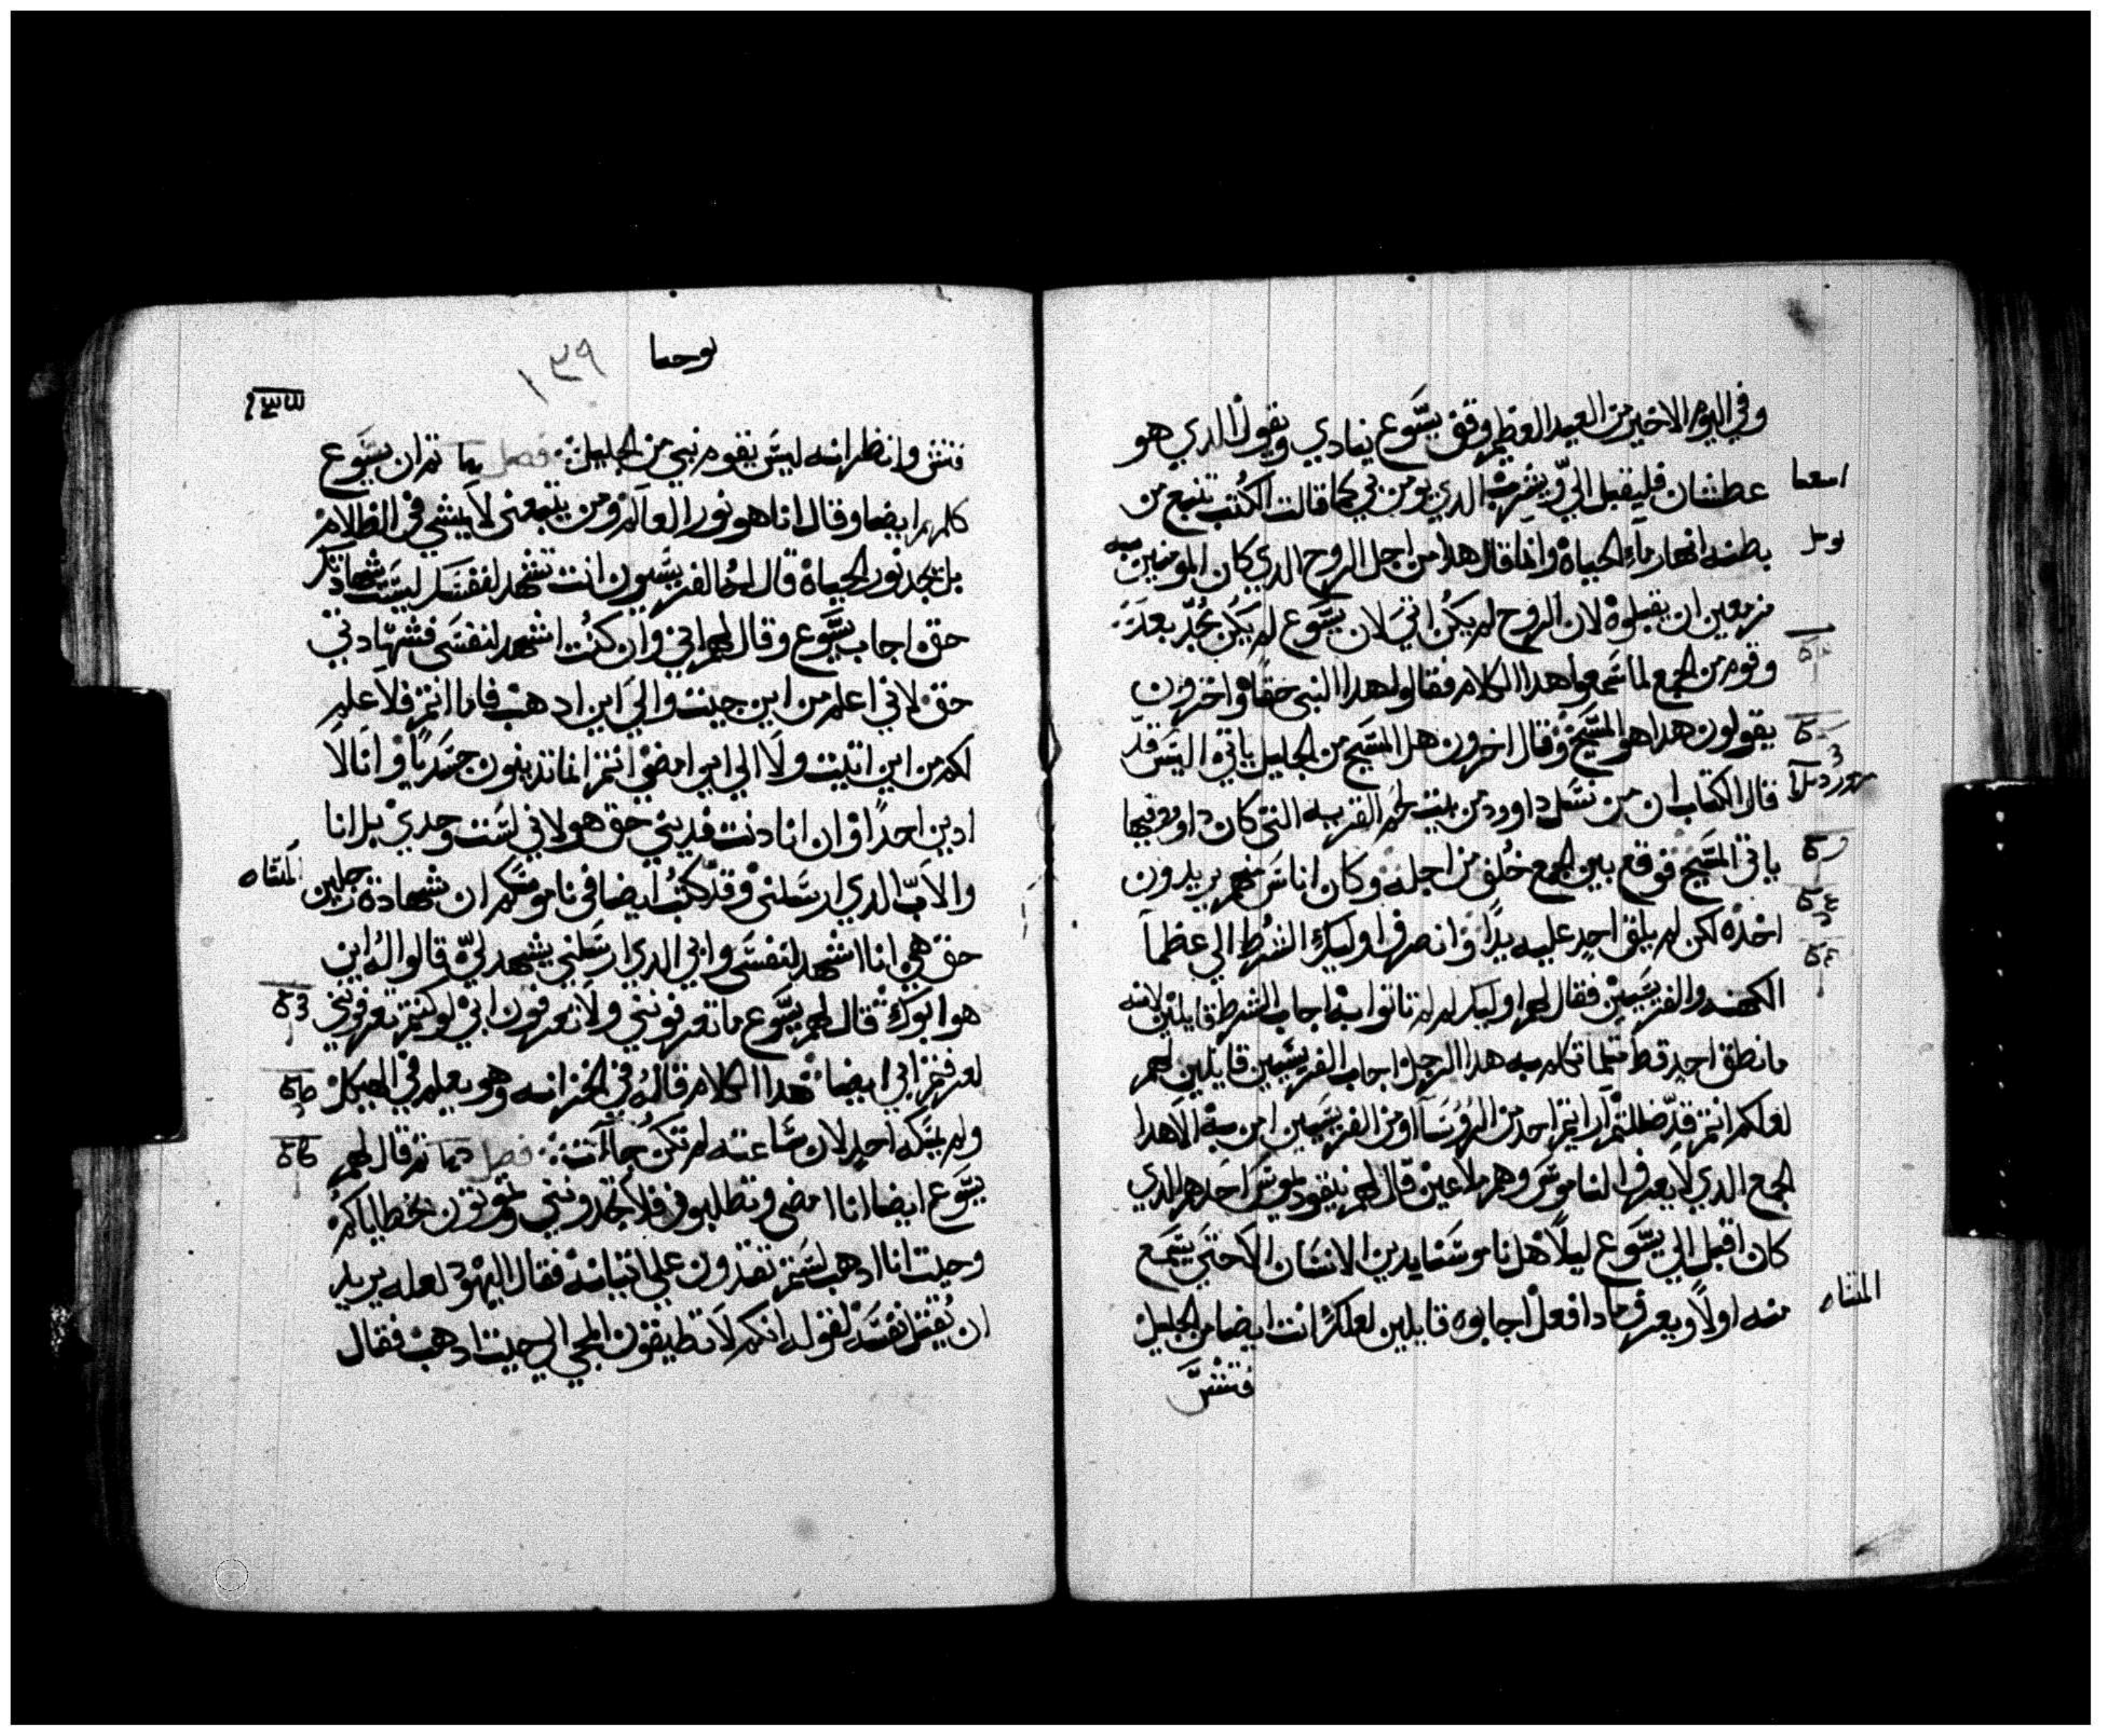 وفي اليوم الاخير من العيد العظيم وقف يسوع ينادي ويقول الذي هو
عطشان فليقبل الي ويشرب الذي يومن بي كما قالت الكتب تنبع من
اسعيا
بطنه انهار ماء الحياة وانما قال هدا من اجل الروح الدي كان المومنين به
يويل
مزمعين ان يقبلوه لان الروح لم يكن اتي لان يسوع لم يكن مجد بعد
وقوم من الجمع لما سمعوا هدا الكلام فقالوا هدا النبي حقا واخرون
يقولون هدا هو المسيح وقال اخرون هل المسيح من الجليل ياتي اليس قد
قال الكتاب ان من نسل داوود من بيت لحم القريه التي كان داوود فيها
ياتي المسيح فوقع بين الجمع خلف من اجله وكان اناس منهم يريدون
اخده لكن لم يلق احد عليه يدا وانصرف اوليك الشرط الي عظما
الكهنه والفريسيين فقال لهم اوليك لم لم تاتوا به اجاب الشرط قايلين لانه
ما نطق احد قط مثلما تكلم به هدا الرجل اجاب الفريسيين قايلين لهم
لعلكم انتم قد ضللتم اراتم احد من الروسا او من الفريسيين امن به الا هدا
الجمع الدي لا يعرف الناموس وهم ملاعين قال لهم نيقوديموس احدهم الدي
كان اقبل الي يسوع ليلا هل ناموسنا يدين الانسان الا حتي يسمع
منه اولا ويعرف مادا فعل اجابوه قايلين لعلك انت ايضا من الجليل
المثناه
فتش
يوحنا
١٣٩
فتش وانظر انه ليس يقوم نبي من الجليل فصل ثم ان يسوع
كلمهم ايضا وقال انا هو نور العالم ومن يتبعني لا يمشي في الظلام
بل يجد نور الحياة قال له الفريسيون انت تشهد لنفسك ليست شهادتك
حق اجاب يسوع وقال لهم اني وان كنت اشهد لنفسي فشهادتي
حق لاني اعلم من اين جيت والي اين ادهب فاما انتم فلا علم
لكم من اين اتيت ولا الي اين امضي انتم انما تدينون جسديا وانا لا
ادين احدا وان انا دنت فديني حق هو لاني لست وحدي بل انا
والاب الدي ارسلني وقد كتب ايضا في ناموسكم ان شهادة رجلين
المثناه
حق هي انا اشهد لنفسي وابي الدي ارسلني يشهد لي قالوا له اين
هو ابوك قال لهم يسوع ما تعرفوني ولا تعرفون ابي لو كنتم تعرفوني
لعرفتم ابي ايضا هدا الكلام قاله في الخزانه وهو يعلم في الهيكل
ولم يمسكه احد لان ساعته لم تكن جات فصل ثم قال لهم
يسوع ايضا انا امضي وتطلبوني فلا تجدونني وتموتون بخطاياكم
وحيت انا ادهب لستم تقدرون علي اتيانه فقال اليهود لعله يريد
ان يقتل نفسه لقوله انكم لا تطيقون المجي الي حيت ادهب فقال